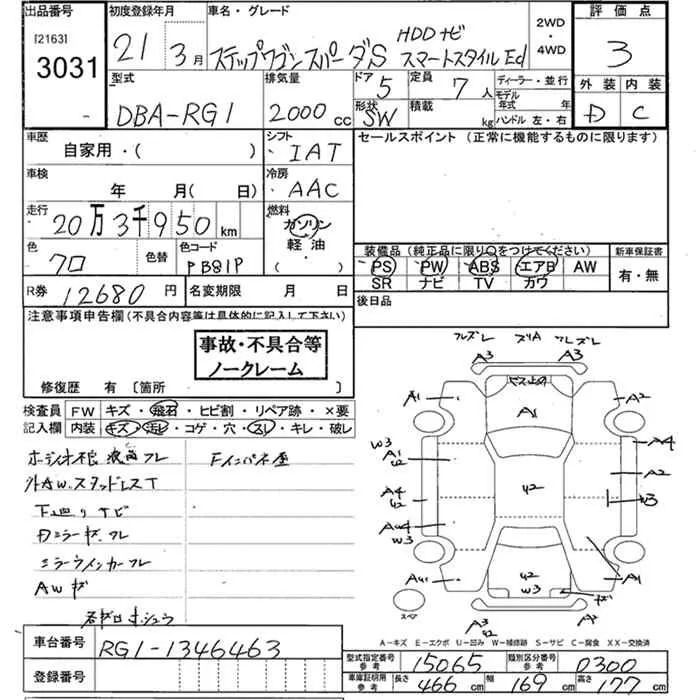 出品番号 初度登録年月 車名・グレード 2WD・4WD 評価点
[2163]
3031
21 3月 ステップワゴンスパーダS HDDナビ スマートスタイルEd
3
型式 排気量 ドア 定員 ディーラー・並行 外装 内装
DBA-RG1 2000cc 5 7人 モデル年式 年
形状 SW 積載 kg ハンドル 左・右 D C
車歴 シフト セールスポイント (正常に機能するものに限ります)
自家用・( ) IAT
車検 冷房
年 月(日) AAC
走行 燃料
20万3千950km ガソリン
軽油
( )
色 色替 色コード 装備品(純正品に限り○をつけてください) 新車保証書
クロ PB81P PS PW ABS エアB AW 有・無
SR ナビ TV カワ
R券 12680円 名変期限 月 日 後日品
注意事項申告欄(不具合内容等は具体的に記入して下さい)
事故・不具合等
ノークレーム
修復歴 有 〔箇所 〕
検査員 FW キズ・飛石・ヒビ割・リペア跡・×要
記入欄 内装 キズ・汚レ・コゲ・穴・スレ・キレ・破レ
外AW.スタッドレスT
下廻りサビ
Dミラーキズ.フレ
ミラーウインカーフレ
AWキズ
スリA
A3 A3
A1 A2
A1
W3 A4
A1
U2 A2
A4 U2 W3
U2
W3
U2
W3
A1
スペア
A3
U2 A2
A-キズ E-エクボ U-凹み W-補修跡 S-サビ C-腐食 XX-交換済
車台番号 RG1-1346463
型式指定番号 参考 15065 類別区分番号 参考 0300
登録番号
車庫証明用 参考 長さ 466cm 幅 169cm 高さ 177cm